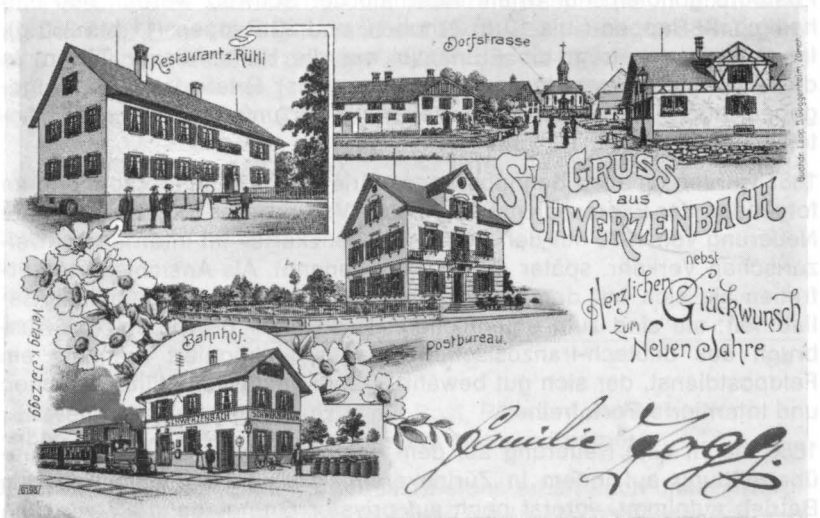 Restaurant z. Rütli
Dorfstrasse
GRUSS
aus
SCHWERZENBACH
nebst
Herzlichen Glückwunsch
zum
Neuen Jahre
Postbureau.
Bahnhof.
SCHWERZENBACH
SCHWERZENBACH
Verlag v. J.J. Zogg
Familie Zogg.